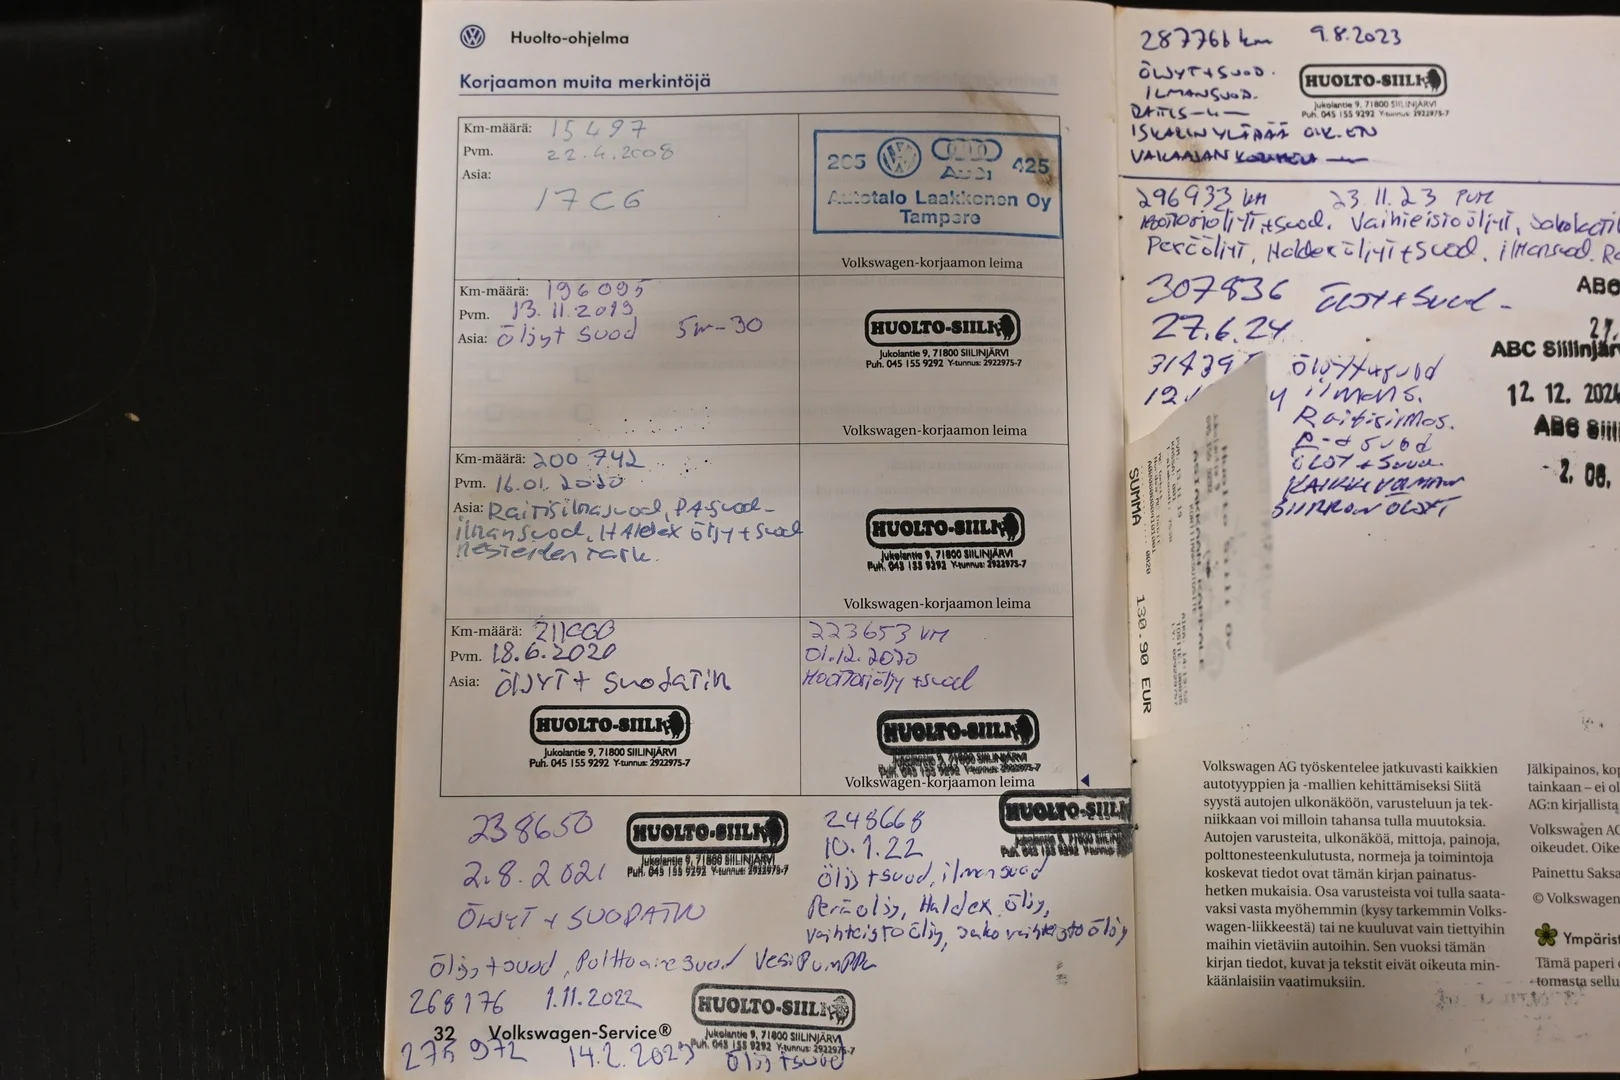 Huolto-ohjelma
Korjaamon muita merkintöjä
Km-määrä: 15497
Pvm. 22.4.2008
Asia:
17C6
205 425
Audi
Autotalo Laakkonen Oy
Tampere
Volkswagen-korjaamon leima
Km-määrä: 196095
Pvm. 13.11.2019
Asia: Öljyt suod 5w-30
HUOLTO-SIILI
Jukolantie 9, 71800 SIILINJÄRVI
Puh. 045 155 9292 Y-tunnus: 2922975-7
Volkswagen-korjaamon leima
Km-määrä: 200 742
Pvm. 16.01.2020
Asia: Raitisilmasuod, PA-suod-
ilmansuod, HAldex öljy+suod
nesteiden tark.
HUOLTO-SIILI
Jukolantie 9, 71800 SIILINJÄRVI
Puh. 045 155 9292 Y-tunnus: 2922975-7
Volkswagen-korjaamon leima
Km-määrä: 211000
Pvm. 18.6.2020
Asia: ÖLJYT+ SUODATIN
HUOLTO-SIILI
Jukolantie 9, 71800 SIILINJÄRVI
Puh. 045 155 9292 Y-tunnus: 2922975-7
223653 km
01.12.2020
Moottoriöljy +suod
HUOLTO-SIILI
Jukolantie 9, 71800 SIILINJÄRVI
Puh. 045 155 9292 Y-tunnus: 2922975-7
Volkswagen-korjaamon leima
238650
2.8.2021
ÖLJYT + SUODATIN
HUOLTO-SIILI
Jukolantie 9, 71800 SIILINJÄRVI
Puh. 045 155 9292 Y-tunnus: 2922975-7
248668
10.1.22
Öljy +suod, ilmansuod
Peräöljy, Haldex öljy,
vaihteistoöljy, jakovaihteistoöljy
HUOLTO-SIILI
Öljy +suod, Polttoainesuod Vesipumppu
268176 1.11.2022
HUOLTO-SIILI
Jukolantie 9, 71800 SIILINJÄRVI
Puh. 045 155 9292 Y-tunnus: 2922975-7
32 Volkswagen-Service®
275 972 14.2.2023 Öljy +suod
287766 km 9.8.2023
ÖLJYT+SUOD.
ILMANSUOD.
RAITIS-"-
ISKARIN YLÄPÄÄ OIK. EN
HUOLTO-SIILI
Jukolantie 9, 71800 SIILINJÄRVI
Puh. 045 155 9292 Y-tunnus: 2922975-7
296933 km 23.11.23 PVM
Moottoriöljyt+suod. Vaihteistoöljyt,
Peräöljyt, Haldexöljyt+suod. ilmansuod.
307836 ÖLJYT + Suod -
27.6.24
ABC
27.
ABC Siilinjär
Öljyt+suod
ilmans.
Raitisilmas.
12. 12. 2024
ABC Siili
ÖLJYT+Suod.
2. 06.
SUMMA
130.90 EUR
Volkswagen AG työskentelee jatkuvasti kaikkien
autotyyppien ja -mallien kehittämiseksi Siitä
syystä autojen ulkonäköön, varusteluun ja tek-
niikkaan voi milloin tahansa tulla muutoksia.
Autojen varusteita, ulkonäköä, mittoja, painoja,
polttonesteenkulutusta, normeja ja toimintoja
koskevat tiedot ovat tämän kirjan painatus-
hetken mukaisia. Osa varusteista voi tulla saata-
vaksi vasta myöhemmin (kysy tarkemmin Volks-
wagen-liikkeestä) tai ne kuuluvat vain tiettyihin
maihin vietäviin autoihin. Sen vuoksi tämän
kirjan tiedot, kuvat ja tekstit eivät oikeuta min-
käänlaisiin vaatimuksiin.
Jälkipainos, kop
tainkaan – ei ol
AG:n kirjallista
Volkswagen AG
oikeudet. Oike
Painettu Saksa
© Volkswagen
Ympärist
Tämä paperi
tomasta sellu